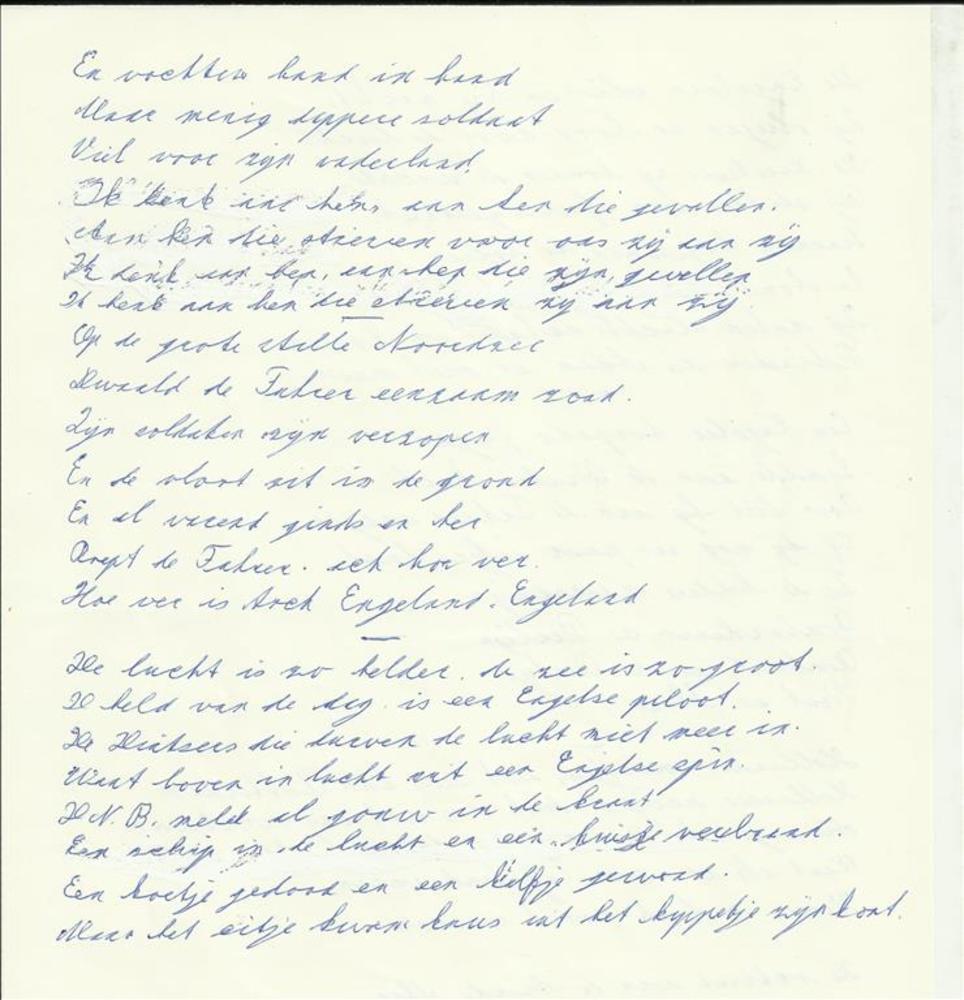 En vochten hand in hand
Maar menig dappere soldaat
Viel voor zijn vaderland.
Ik denk aan hen, aan hen die gevallen.
Aan hen die stierven voor ons zij aan zij
Ik denk aan hen, aan hen die zijn gevallen
Ik denk aan hen die stierven zij aan zij
Op de grote stille Noordzee
Dwaald de Fuhrer eenzaam rond.
Zijn soldaten zijn verzopen
En de vloot zit in de grond
En al varend ginds en her
Roept de Fuhrer. ach hoe ver.
Hoe ver is toch Engeland. Engeland
De lucht is zo helder. de zee is zo groot.
De held van de dag. is een Engelse piloot.
De Duitsers die durven de lucht niet meer in.
Want boven in lucht zit een Engelse spin.
D.N.B. meld al gouw in de krant
Een schip in de lucht en een huisje verbrand.
Een koetje gedood en een kalfje gewond.
Maar het eitje kwam knus uit het kippetje zijn kont.